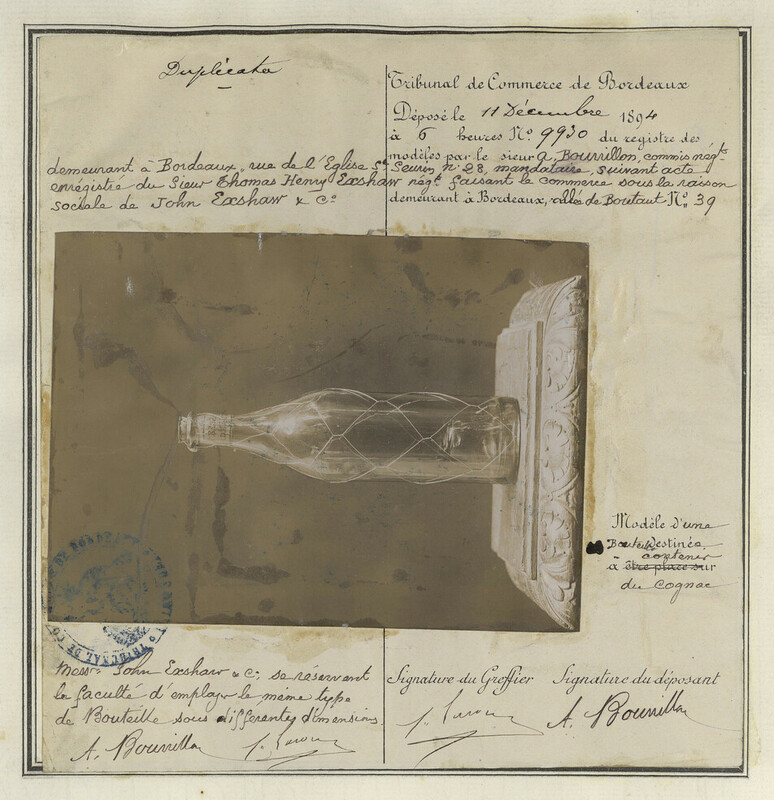 Duplicata
Tribunal de Commerce de Bordeaux
Déposé le 11 Décembre 1894
à 6 heures No. 9930 du registre des
modèles par le sieur A. Bouvillon, commis négt
demeurant à Bordeaux, rue de l'Eglise St Seurin no 28, mandataire, suivant acte
enrégistré du Sieur Thomas Henry Exshaw négt faisant le commerce sous la raison
sociale de John Exshaw & Co
demeurant à Bordeaux, allée de Boutaut No. 39
Modèle d'une
Bouteille destinée
à être placé sur
contenir
du Cognac
TRIBUNAL DE CO
DE BORDEAUX
Messrs John Exshaw & Co se réservent
la faculté d'employer le même type
de Bouteille sous différentes dimensions.
A. Bouvillon
Signature du Greffier
Signature du déposant
A. Bouvillon